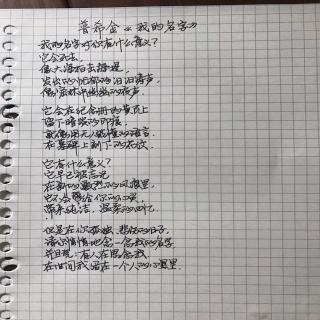 普希金《我的名字》
我的名字对你有什么意义？
它会死去，
像大海拍击海堤，
发出的忧郁的汩汩涛声，
像密林中幽幽的夜声，
它会在纪念册的黄页上
留下暗淡的印痕，
就像用无人能懂的语言
在墓碑上刻下的花纹
它有什么意义？
它早已被忘记
在新的激烈的风浪里，
它不会带给你的心灵
带来纯洁、温柔的回忆．
但是在你孤独、悲伤的日子，
请你悄悄地念一念我的名字
并且说：有人在思念我，
在世间我活在一个人的心里